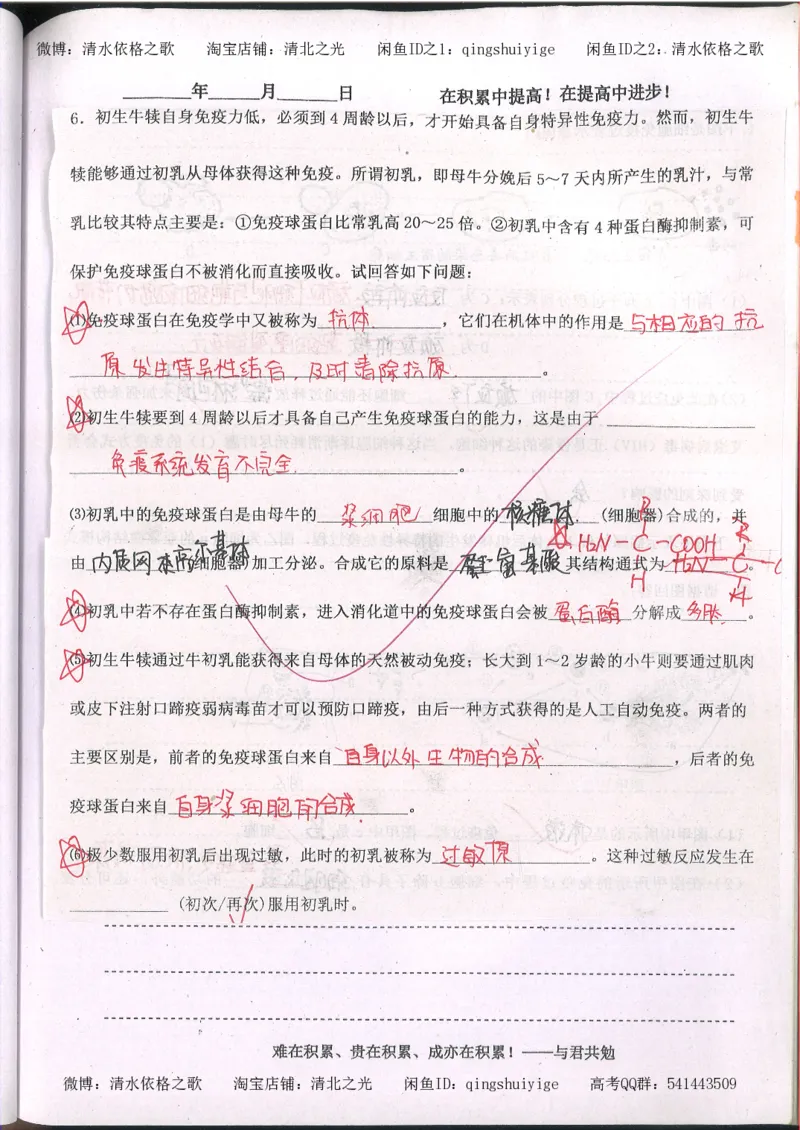 微博：清水依格之歌 淘宝店铺：清北之光 闲鱼ID之1：qingshuiyige 闲鱼ID之2：清水依格之歌
____年____月____日 在积累中提高！在提高中进步！
6．初生牛犊自身免疫力低，必须到4周龄以后，才开始具备自身特异性免疫力。然而，初生牛
犊能够通过初乳从母体获得这种免疫。所谓初乳，即母牛分娩后5～7天内所产生的乳汁，与常
乳比较其特点主要是：①免疫球蛋白比常乳高20～25倍。②初乳中含有4种蛋白酶抑制素，可
保护免疫球蛋白不被消化而直接吸收。试回答如下问题：
(1)免疫球蛋白在免疫学中又被称为 抗体 ，它们在机体中的作用是 与相应的抗
原发生特异性结合，及时清除抗原 。
(2)初生牛犊要到4周龄以后才具备自己产生免疫球蛋白的能力，这是由于
免疫系统发育不完全 。
(3)初乳中的免疫球蛋白是由母牛的 浆细胞 细胞中的 核糖体 (细胞器)合成的，并
由 内质网 高尔基体 (细胞器)加工分泌。合成它的原料是 氨基酸 其结构通式为 。
R
H₂N－C－COOH
H
R
H₂N－C－C
H
(4)初乳中若不存在蛋白酶抑制素，进入消化道中的免疫球蛋白会被 蛋白酶 分解成 多肽 。
(5)初生牛犊通过牛初乳能获得来自母体的天然被动免疫；长大到1～2岁龄的小牛则要通过肌肉
或皮下注射口蹄疫弱病毒苗才可以预防口蹄疫，由后一种方式获得的是人工自动免疫。两者的
主要区别是，前者的免疫球蛋白来自 自身以外生物的合成 ，后者的免
疫球蛋白来自 自身浆细胞的合成 。
(6)极少数服用初乳后出现过敏，此时的初乳被称为 过敏原 。这种过敏反应发生在
____ (初次/再次)服用初乳时。
难在积累、贵在积累、成亦在积累！——与君共勉
微博：清水依格之歌 淘宝店铺：清北之光 闲鱼ID：qingshuiyige 高考QQ群：541443509